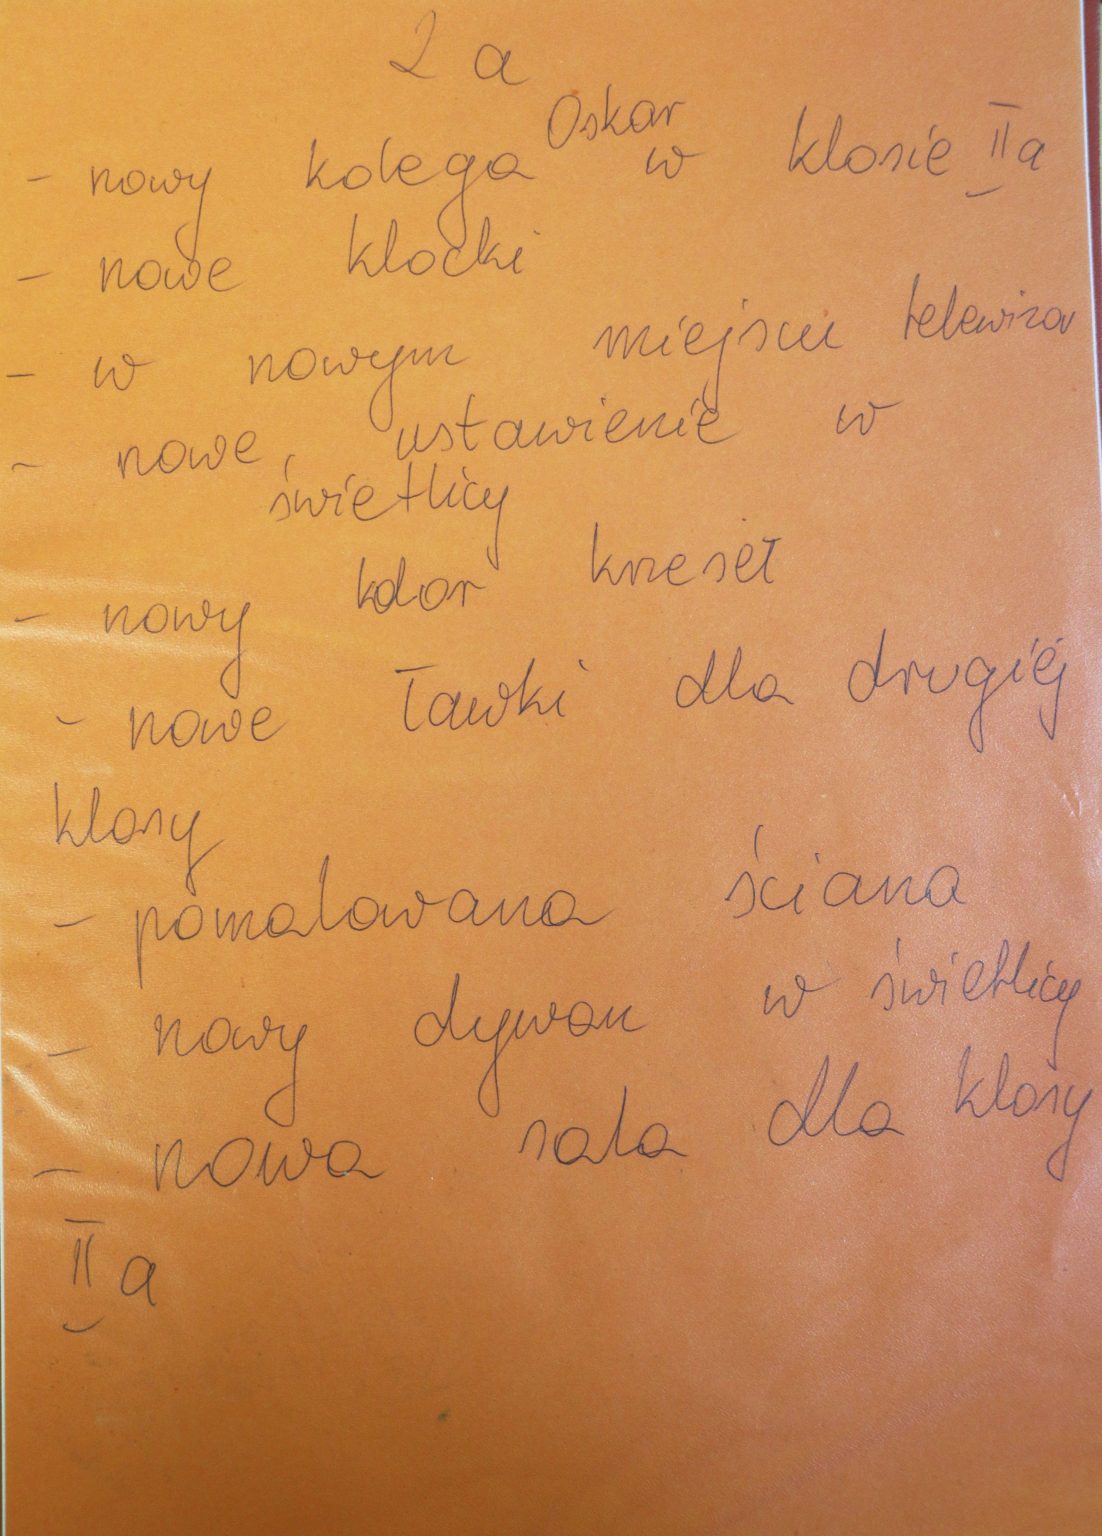 2 a
- nowy kolega Oskar w klasie II a
- nowe klocki
- w nowym miejscu telewizor
- nowe ustawienie w
świetlicy
- nowy kolor krzeseł
- nowe ławki dla drugiej
klasy
- pomalowana ściana
- nowy dywan w świetlicy
- nowa sala dla klasy
II a